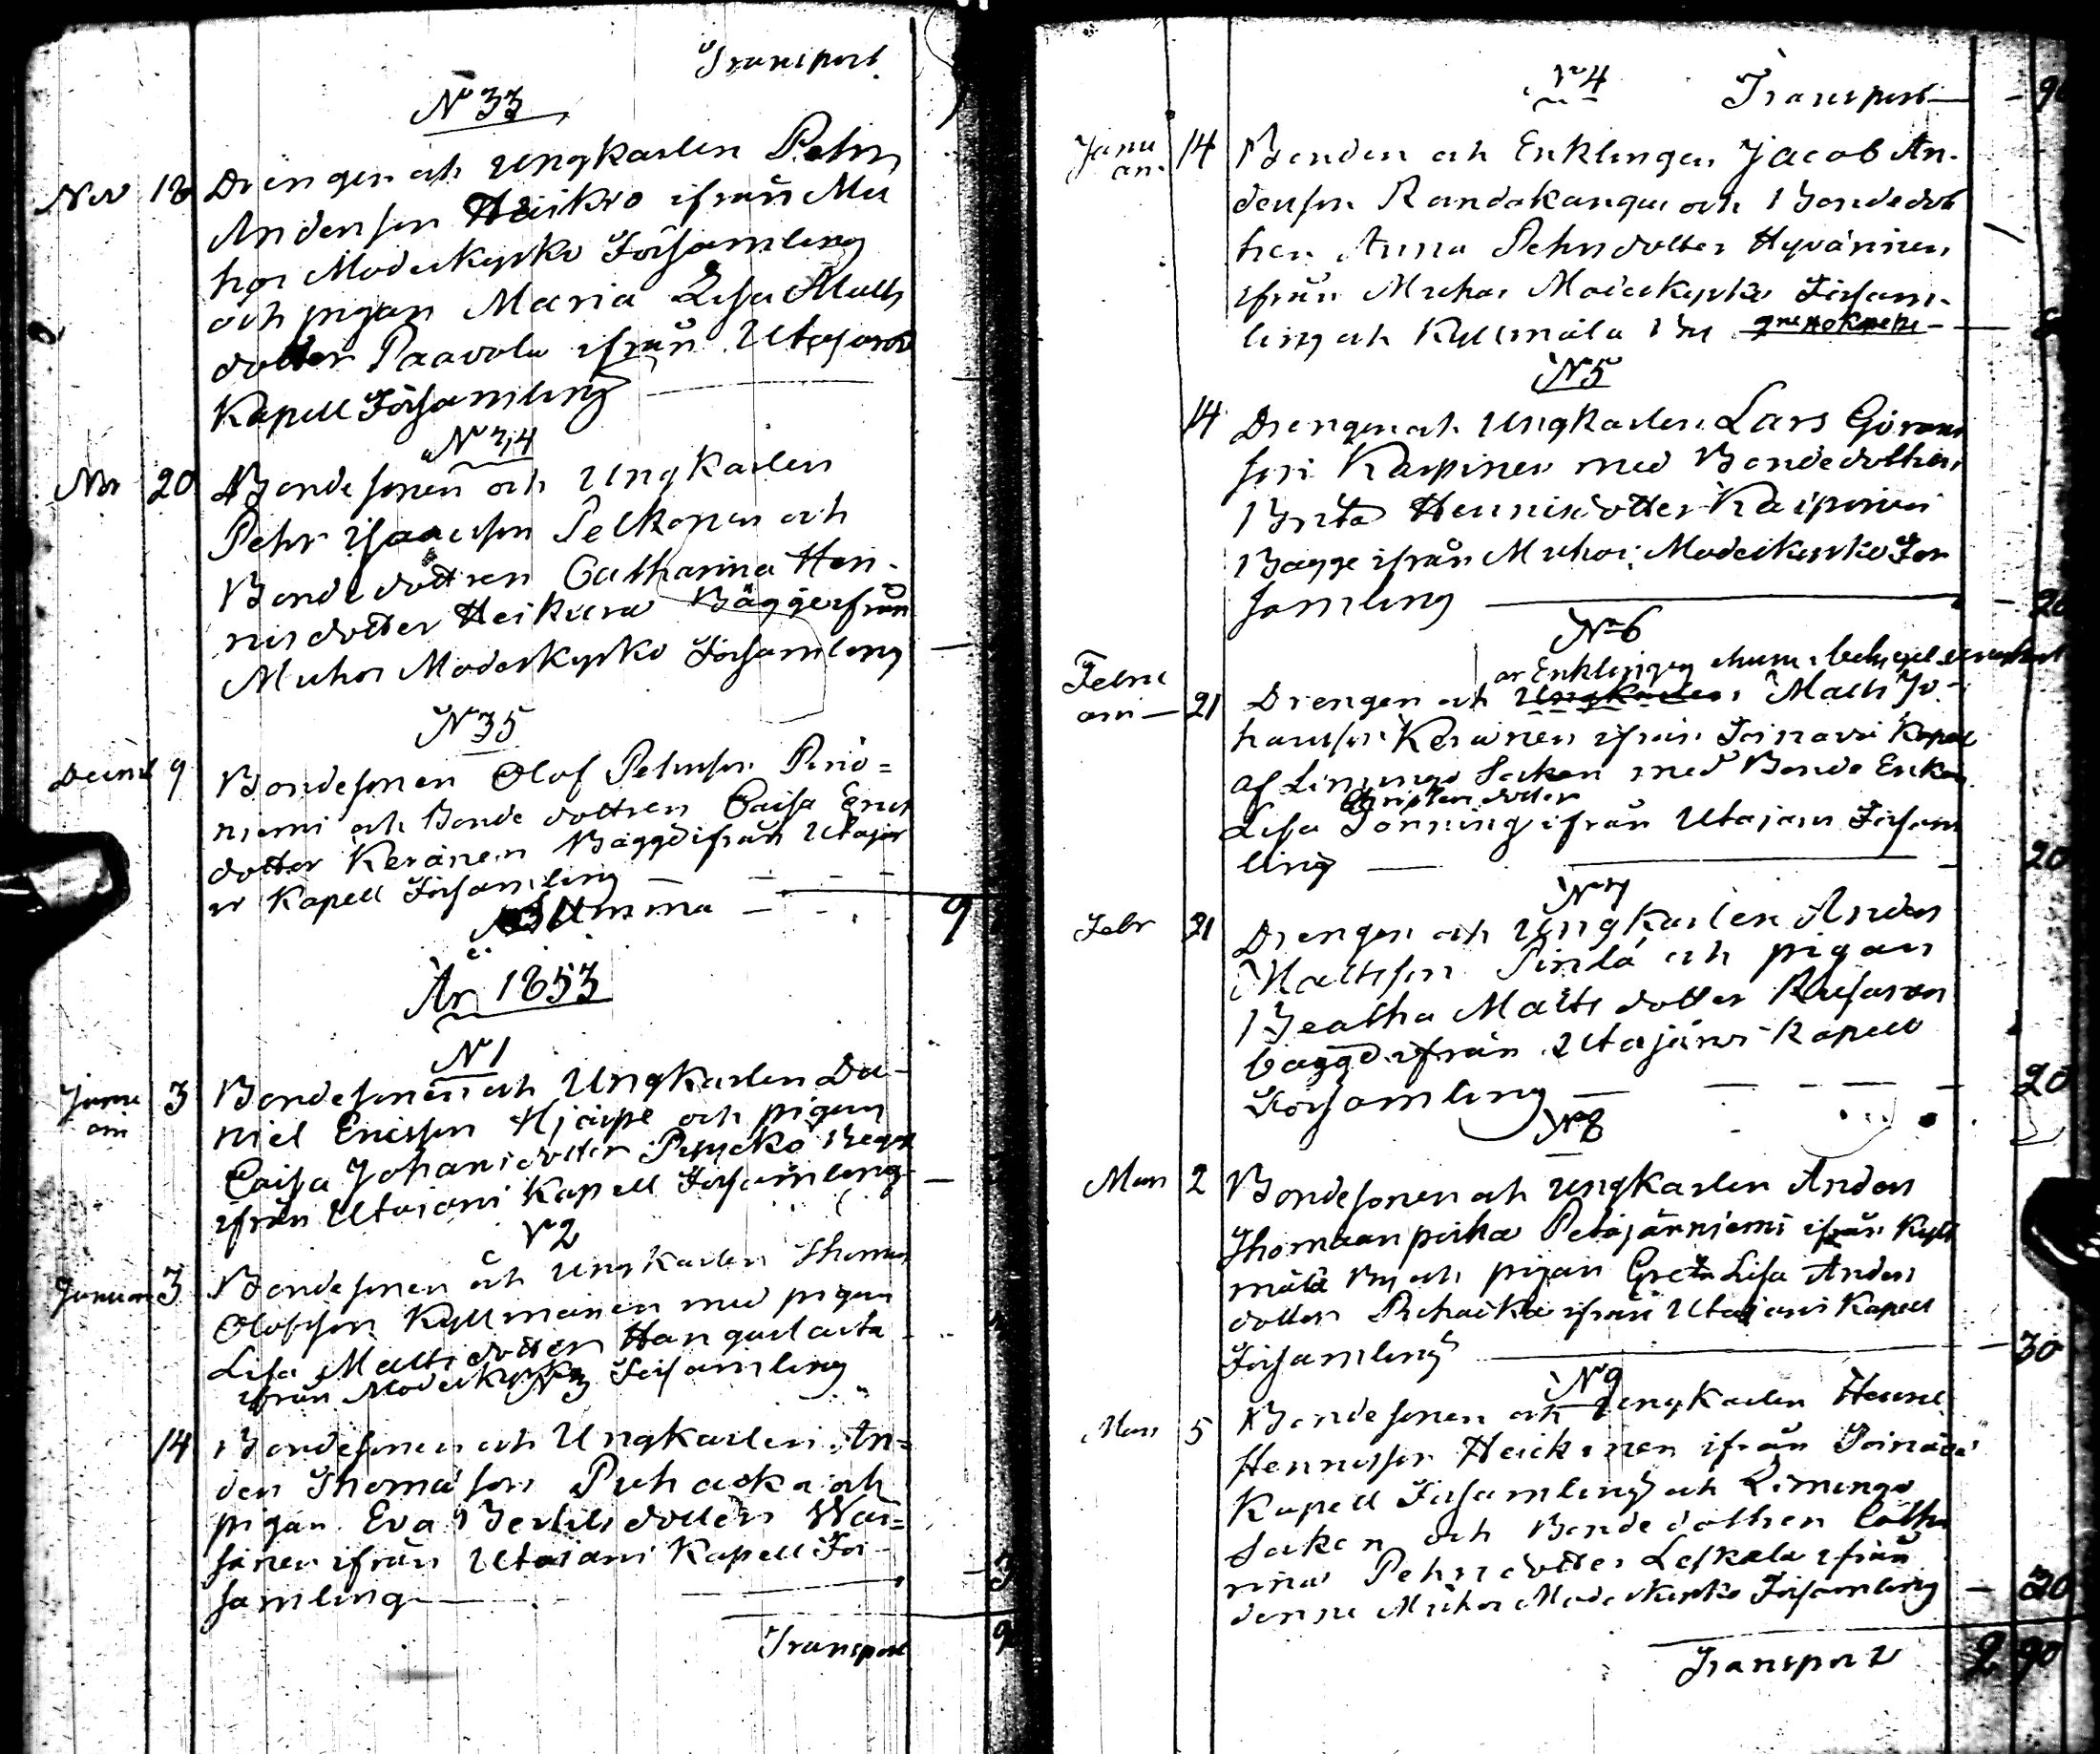 Transport
N 33
Nov 18 Drengen och Ungkarlen Pehr
Andersson Heikro ifrån Mu
hos Moderkyrko Församling
och pigan Maria Lisa Matts
dotter Paavola ifrån Utajärvi
Kapell Församling
N 34
Nov 20 Bondesonen och Ungkarlen
Pehr Isaacsson Pelkonen och
Bondedottren Catharina Hen-
ricsdotter Heikura Bägge ifrån
Muhos Moderkyrko Församling
N 35
Decemb 9 Bondesonen Olof Pehrsson Pirio=
niemi och Bonde dottren Caisa Erics
dotter Keränen Bägge ifrån Utajär
vi Kapell Församling
Summa 9
År 1853
N 1
Janu
ari 3 Bondesonen och Ungkarlen Da-
niel Ericsson Hjerpe och pigan
Caisa Johansdotter Bägge
ifrån Utajärvi Kapell Församling
N 2
Januari 3 Bondesonen och Ungkarlen Thomas
Olofsson Kyllmänen med pigan
Lisa Mattsdotter
ifrån Moderkyrko Församling
N 3
14 Bondesonen och Ungkarlen An=
ders Thomasson Puhacka och
pigan Eva Bertilsdotter Wäi=
sänen ifrån Utajärvi Kapell För
samling
Transport 9
N 4 Transport 90
Janu
ari 14 Bonden och Enklingen Jacob An-
dersson Randakangas och Bondedot
tren Anna Pehrsdotter Hyvärinen
ifrån Muhos Moderkyrko Försam-
ling och Kyllmälä By
N 5
14 Drengen och Ungkarlen Lars Görans
son Karpinen med Bondedottren
Brita Henricsdotter Kaipinen
Bägge ifrån Muhos Moderkyrko För
samling 20
N 6
Febru
ari 21 Drengen och Ungkarlen Matts Jo-
hansson Keränen ifrån Kapell
af Limingo Socken med Bonde Enkan
Christersdotter
Lisa Törning ifrån Utajärvi Försam
ling 20
N 7
Febr 21 Drengen och Ungkarlen Anders
Mattsson Pirilä och pigan
Beatha Matts dotter
bägge ifrån Utajärvi Kapell
Församling 20
N 8
Mars 2 Bondesonen och Ungkarlen Anders
Thomaanpoika Petäjäniemi ifrån Kyll
mälä By och pigan Greta Lisa Anders
dotter Puhacka ifrån Utajärvi Kapell
Församling 30
N 9
Mars 5 Bondesonen och Ungkarlen Henric
Henricsson Heickinen ifrån
Kapell Församling och Limingo
Socken och Bondedottren Catha
rina Pehrsdotter Leskelä ifrån
denne Muhos Moderkyrko Församling 30
Transport 2 90